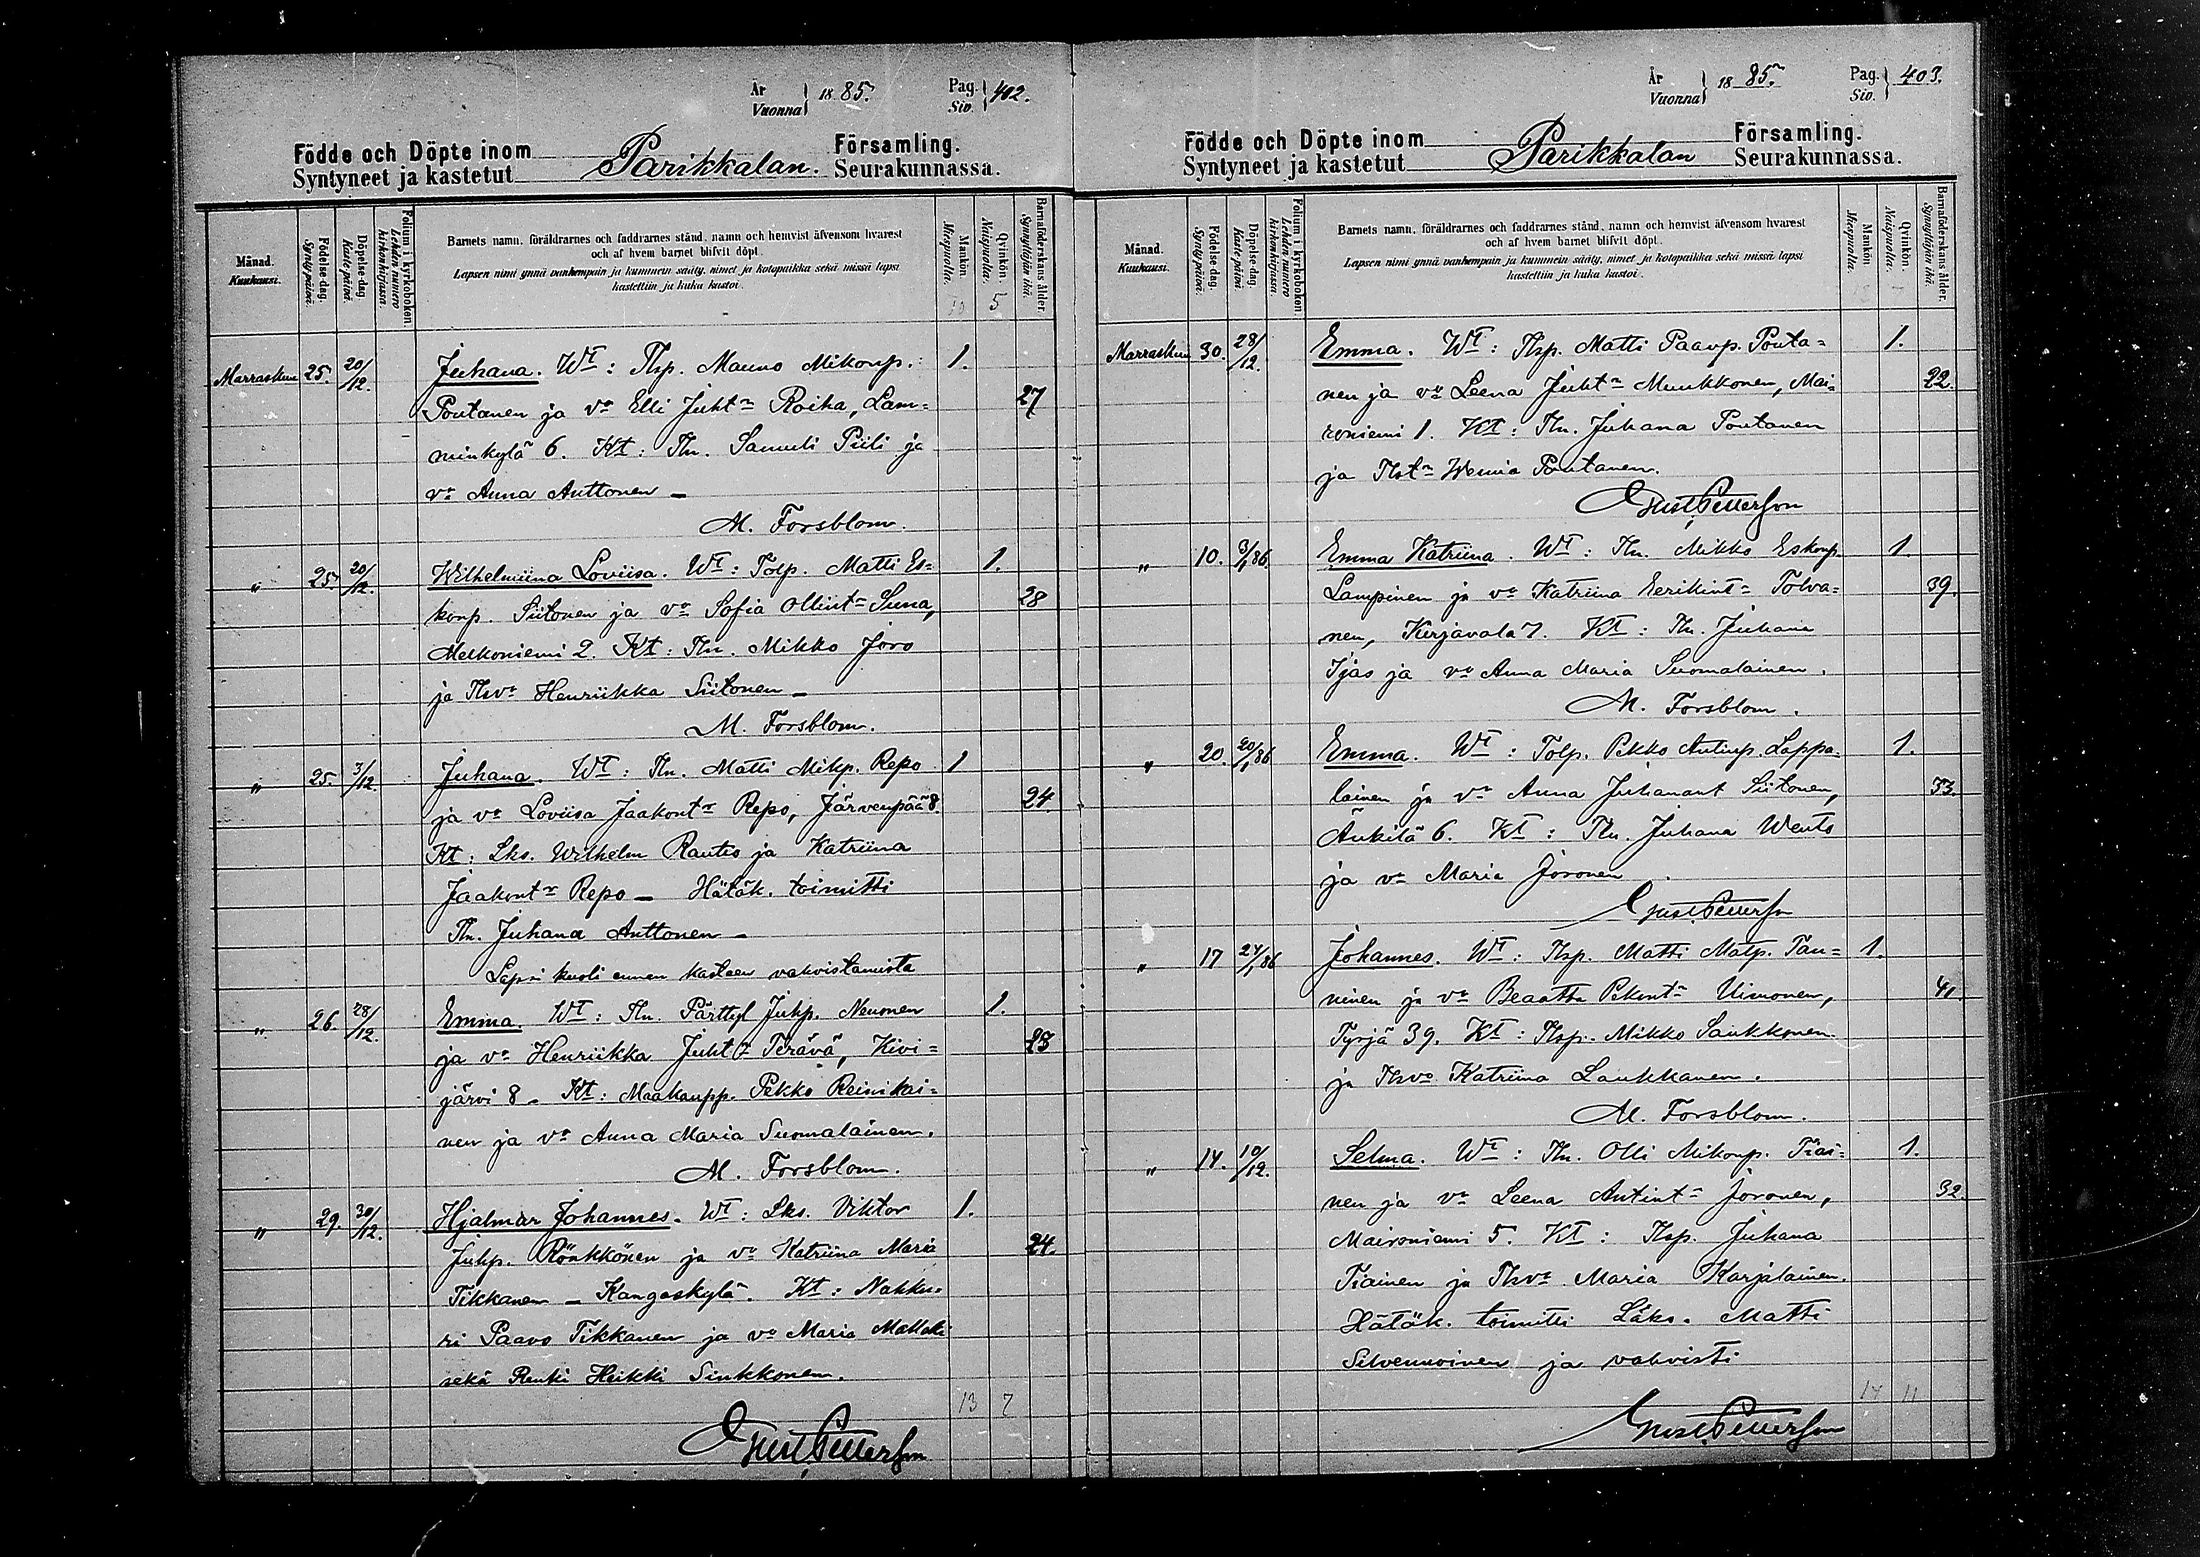 År
Vuonna } 1885. Pag.
Siv. } 402.
Födde och Döpte inom Parikkalan. Församling.
Syntyneet ja kastetut Seurakunnassa.
Månad. Kuukausi.
Födelse-dag. Syntypäivä.
Döpelse-dag. Kastepäivä.
Folium i kyrkoboken. Lehden numero kirkonkirjassa.
Barnets namn, föräldrarnes och faddrarnes stånd, namn och hemvist äfvensom hvarest
och af hvem barnet blifvit döpt.
Lapsen nimi ynnä vanhempain ja kummein sääty, nimet ja kotopaikka sekä missä lapsi
kastettiin ja kuka kastoi.
Mankön. Miespuolta.
Qvinkön. Naispuolta. 5
Barnaföderskans ålder. Synnyttäjän ikä.
Marraskuu 25. 20/12. Juhana. Wt: Tlsp. Mauno Mikonp. 1.
Poutanen ja vo Elli Juhtr Roiha, Lam= 27
minkylä 6. Kt: Tln. Samuli Piili ja
vo Anna Anttonen —
M. Forsblom.
" 25. 20/12. Wilhelmiina Loviisa. Wt: Tolp. Matti Es= 1.
konp. Siitonen ja vo Sofia Ollintr Suna, 28
Melkoniemi 2. Kt: Tln. Mikko Joro
ja Tlsvo Henriikka Siitonen —
M. Forsblom.
" 25. 3/12. Juhana. Wt: Tln. Matti Mikp. Repo 1
ja vo Loviisa Jaakontr Repo, Järvenpää 8. 24
Kt: Lks. Wilhelm Rautio ja Katriina
Jaakontr Repo — Hätäk. toimitti
Tln. Juhana Anttonen —
Lapsi kuoli ennen kasteen vahvistamista
" 26. 28/12. Emma. Wt: Tln. Pärttyl Juhp. Neuonen 1.
ja vo Henriikka Juhtr Terävä, Kivi= 28
järvi 8 — Kt: Maakaupp. Pekko Reinikai=
nen ja vo Anna Maria Suomalainen.
M. Forsblom.
" 29. 30/12. Hjalmar Johannes. Wt: Lks. Viktor 1.
Juhp. Rönkkönen ja vo Katriina Maria 24.
Tikkanen — Kangaskylä. Kt: Nahku=
ri Paavo Tikkanen ja vo Maria
sekä Renki Heikki Sinkkonen.
13 7
Gust. Petterson
År
Vuonna } 1885. Pag.
Siv. } 403.
Födde och Döpte inom Parikkalan Församling.
Syntyneet ja kastetut Seurakunnassa.
Månad. Kuukausi.
Födelse-dag. Syntypäivä.
Döpelse-dag. Kastepäivä.
Folium i kyrkoboken. Lehden numero kirkonkirjassa.
Barnets namn, föräldrarnes och faddrarnes stånd, namn och hemvist äfvensom hvarest
och af hvem barnet blifvit döpt.
Lapsen nimi ynnä vanhempain ja kummein sääty, nimet ja kotopaikka sekä missä lapsi
kastettiin ja kuka kastoi.
Mankön. Miespuolta.
Qvinkön. Naispuolta.
Barnaföderskans ålder. Synnyttäjän ikä.
Marraskuu 30. 28/12. Emma. Wt: Tlsp. Matti Paavp. Pouta= 1.
nen ja vo Leena Juhtr Muukkonen, Mai= 22.
roniemi 1. Kt: Tln. Juhana Poutanen
ja Tlstr Wemia Poutanen.
Gust. Petterson
" 10. 3/1 86 Emma Katriina. Wt: Tln. Mikko Eskonp. 1.
Lampinen ja vo Katriina Eerikintr Tolva= 39.
nen, Kirjavala 7. Kt: Tln. Juhana
Ijäs ja vo Anna Maria Suomalainen.
M. Forsblom.
" 20. 20/1 86 Emma. Wt: Tolp. Pekko Antinp. Lappa= 1.
lainen ja vo Anna Juhanant Siitonen, 33.
Änkilä 6. Kt: Tln. Juhana Wento
ja vo Maria Joronen.
Gust. Petterson
" 17 24/1 86 Johannes. Wt: Tlsp. Matti Matp. Tan= 1.
ninen ja vo Beaatta Pekontr Uimonen, 41.
Tyrjä 39. Kt: Tlsp. Mikko Saukkonen
ja Tlsvo Katriina Laukkanen.
M. Forsblom.
" 14. 10/12. Selma. Wt: Tln. Olli Mikonp. Tiai= 1.
nen ja vo Leena Antintr Joronen, 32.
Maironiemi 5. Kt: Tlsp. Juhana
Tiainen ja Tlsvo Maria Karjalainen.
Hätäk. toimitti Läks. Matti
Silvennoinen ja vahvisti
14 11
Gust. Petterson